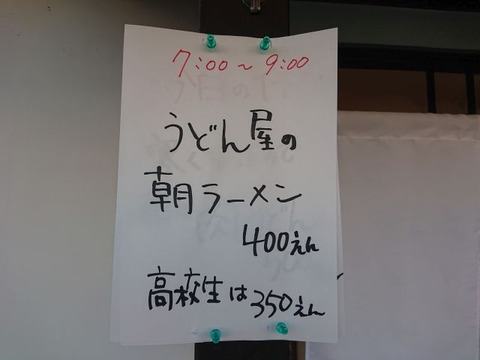 7:00～9:00
うどん屋の
朝ラーメン
400えん
高校生は350えん